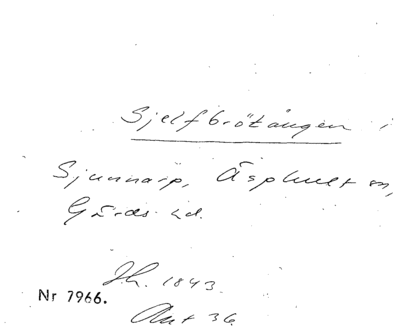 Sjelfbrötången i
Sjunnarp, Äsphult sn,
Gärds hd.
Jh. 1843.
Nr 7966.
Akt 36